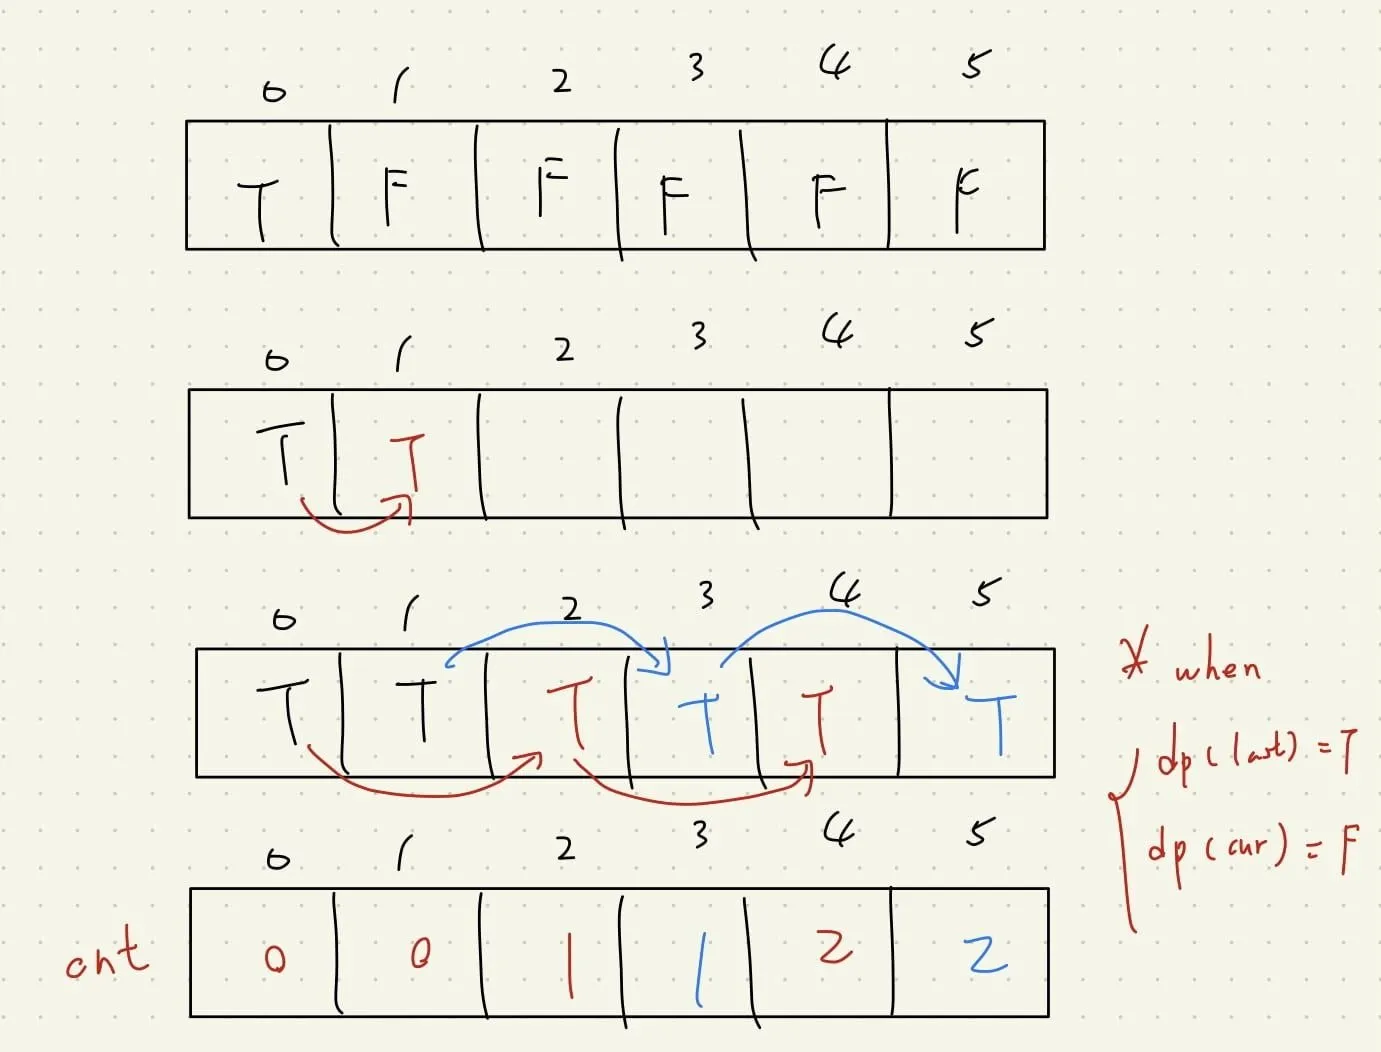 0 1 2 3 4 5
T F F F F F
0 1 2 3 4 5
T T
0 1 2 3 4 5
T T T T T T
* when
dp(last) = T
dp(cur) = F
0 1 2 3 4 5
cnt 0 0 1 1 2 2